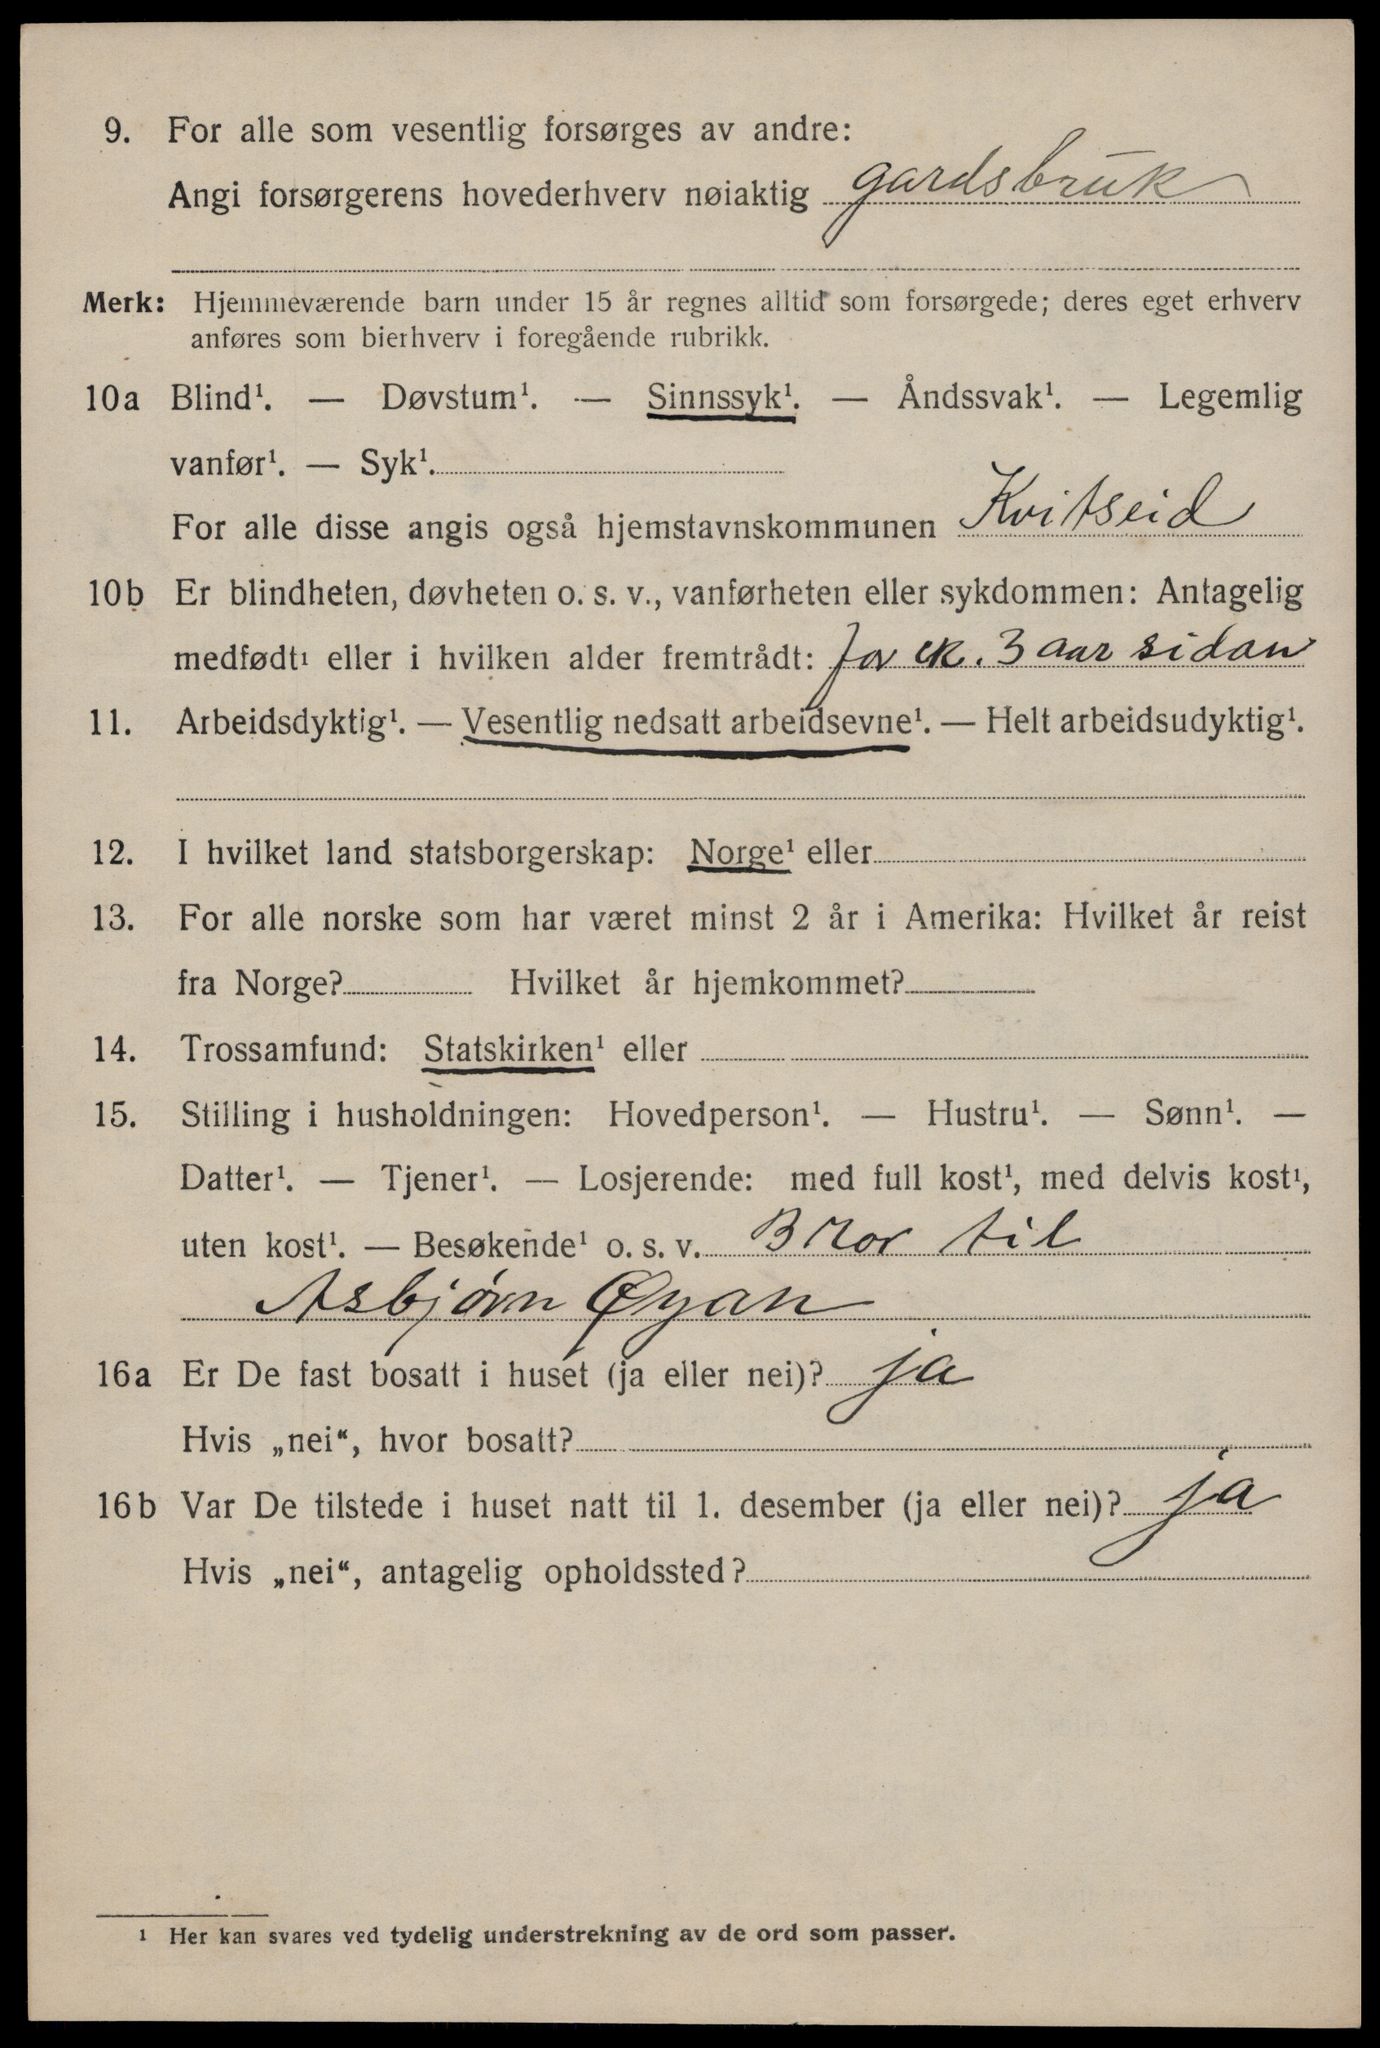 9. For alle som vesentlig forsørges av andre:
Angi forsørgerens hovederhverv nøiaktig gardsbruk
Merk: Hjemmeværende barn under 15 år regnes alltid som forsørgede; deres eget erhverv
anføres som bierhverv i foregående rubrikk.
10a Blind¹. — Døvstum¹. — Sinnssyk¹. — Åndssvak¹. — Legemlig
vanfør¹. — Syk¹.
For alle disse angis også hjemstavnskommunen Kvitseid
10b Er blindheten, døvheten o. s. v., vanførheten eller sykdommen: Antagelig
medfødt¹ eller i hvilken alder fremtrådt: for ck. 3 aar sidan
11. Arbeidsdyktig¹. — Vesentlig nedsatt arbeidsevne¹. — Helt arbeidsudyktig¹.
12. I hvilket land statsborgerskap: Norge¹ eller
13. For alle norske som har været minst 2 år i Amerika: Hvilket år reist
fra Norge? Hvilket år hjemkommet?
14. Trossamfund: Statskirken¹ eller
15. Stilling i husholdningen: Hovedperson¹. — Hustru¹. — Sønn¹. —
Datter¹. — Tjener¹. — Losjerende: med full kost¹, med delvis kost¹,
uten kost¹. — Besøkende¹ o. s. v. Bror til
Asbjørn Øyan
16a Er De fast bosatt i huset (ja eller nei)? ja
Hvis „nei“, hvor bosatt?
16b Var De tilstede i huset natt til 1. desember (ja eller nei)? ja
Hvis „nei“, antagelig opholdssted?
¹ Her kan svares ved tydelig understrekning av de ord som passer.